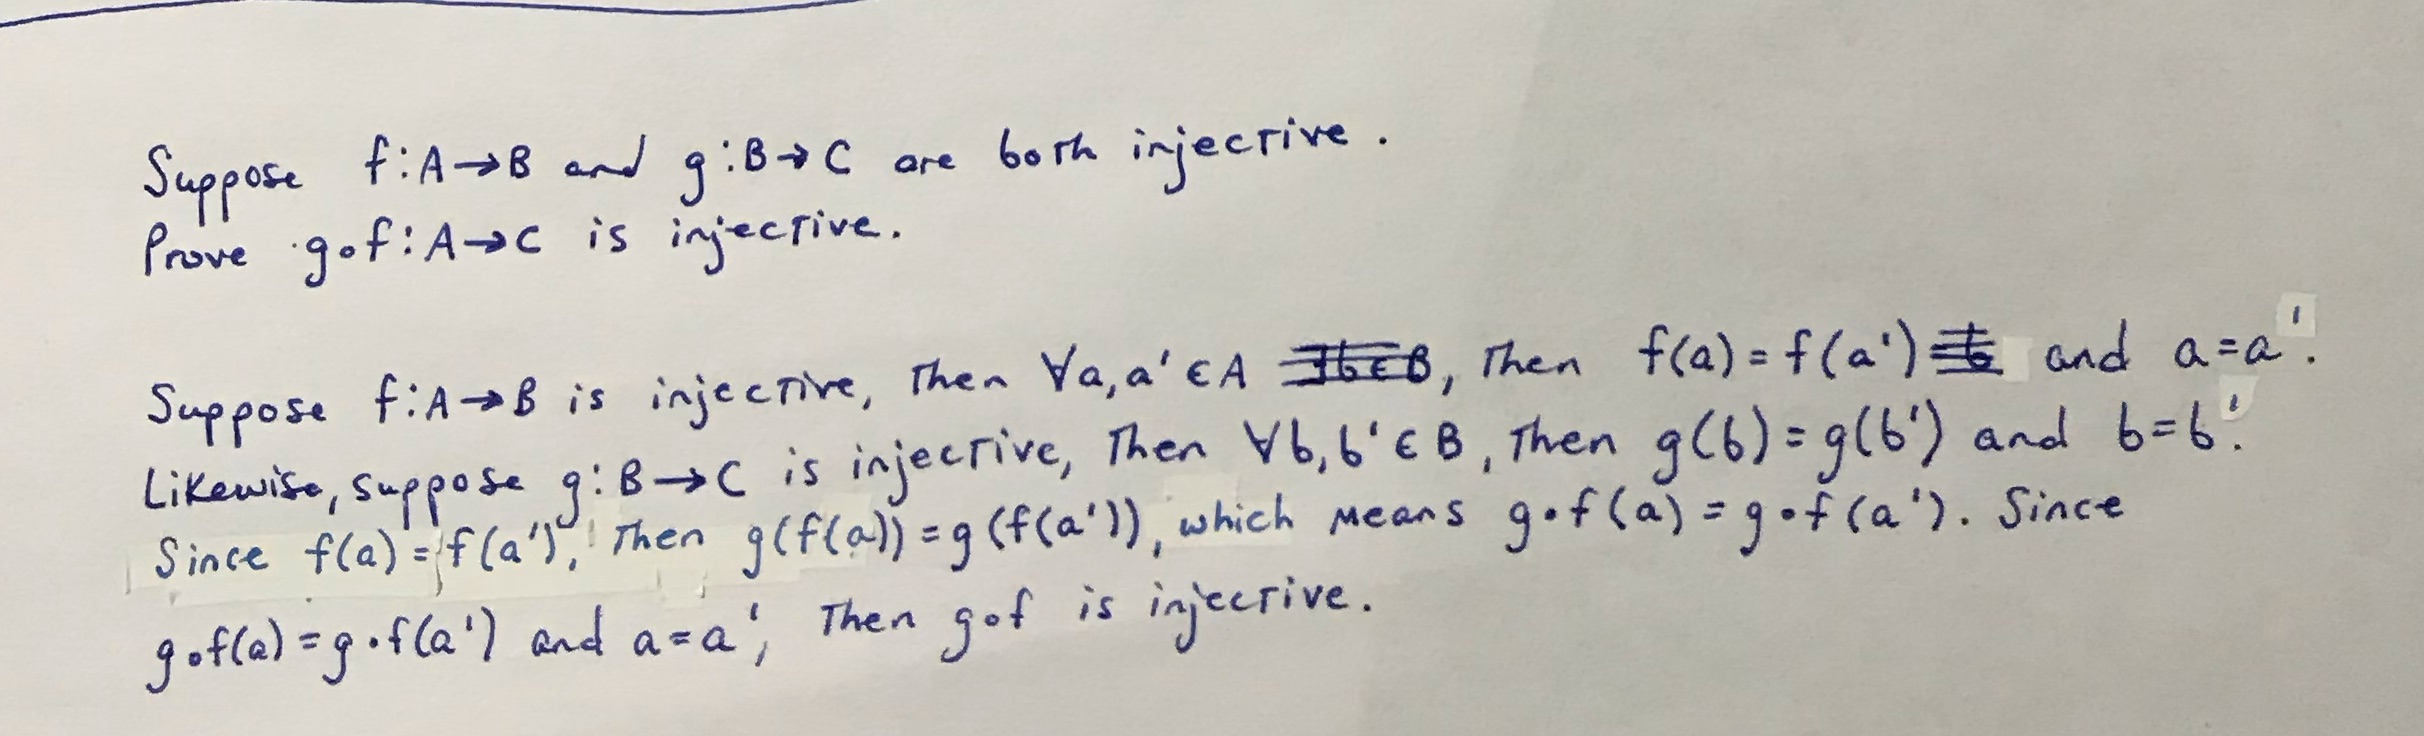 Suppose f:A→B and g:B→C are both injective.
Prove g∘f:A→C is injective.
Suppose f:A→B is injective, Then ∀a,a'∈A ∃b∈B, Then f(a)=f(a') and a=a'.
Likewise, suppose g:B→C is injective, Then ∀b,b'∈B, Then g(b)=g(b') and b=b'.
Since f(a)=f(a'), Then g(f(a))=g(f(a')), which means g∘f(a)=g∘f(a'). Since
g∘f(a)=g∘f(a') and a=a', Then g∘f is injective.